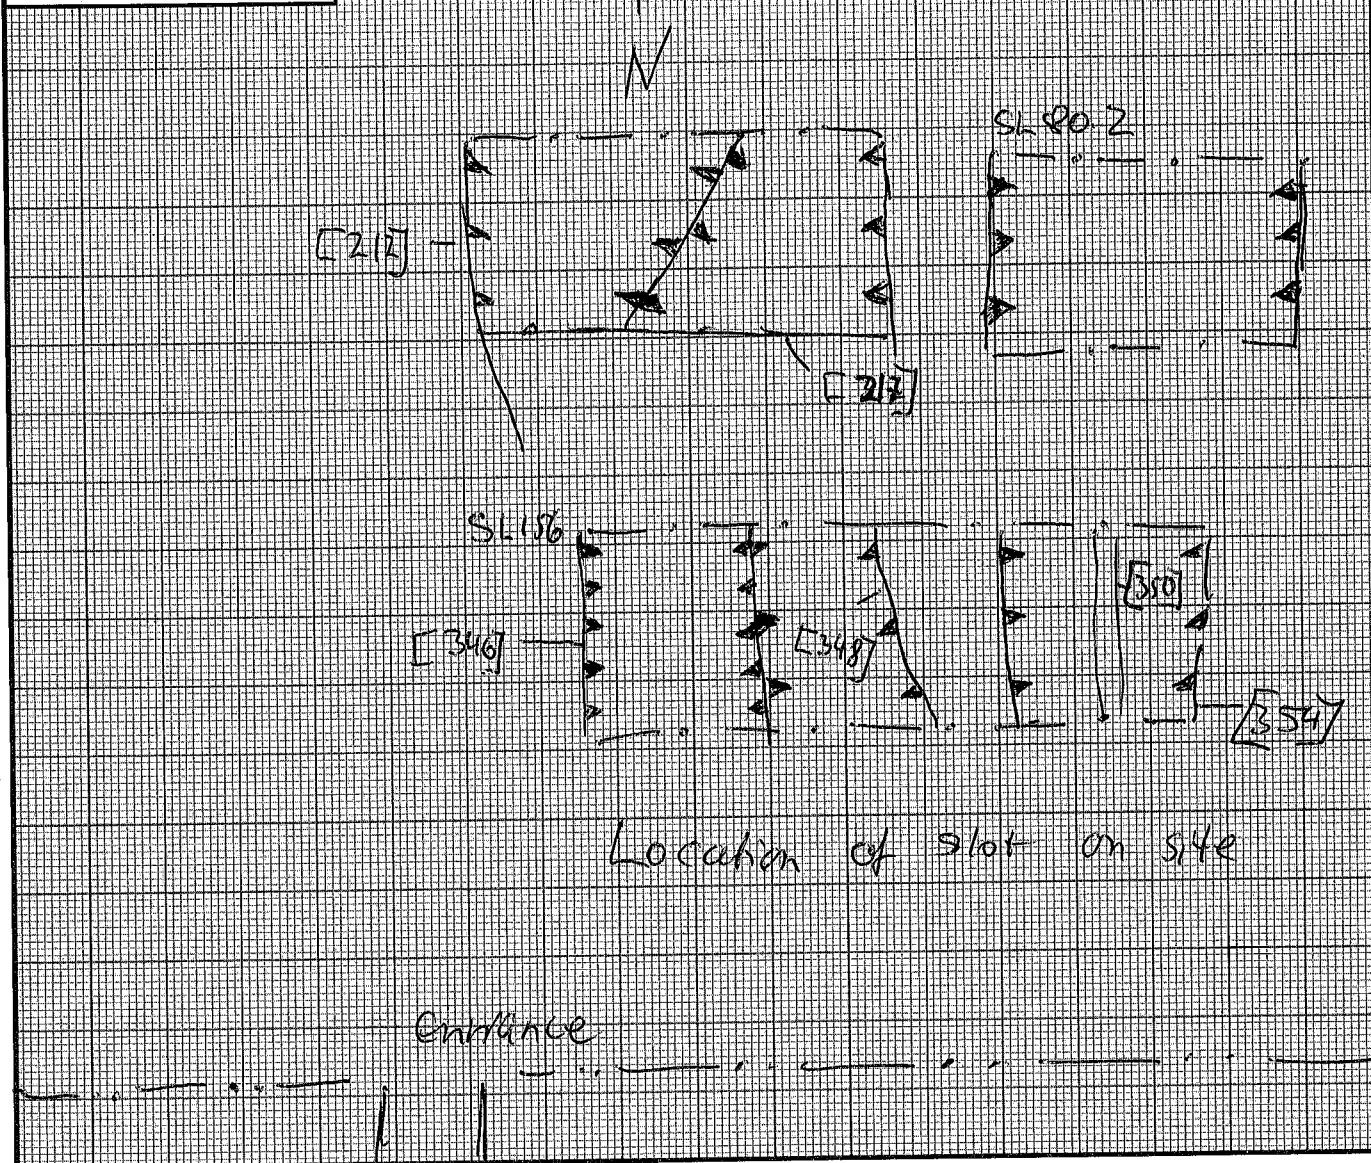 N
SL 80.2
[212]
[217]
SL156
[350]
[346]
[348]
[354]
Location of slot on site
Entrance